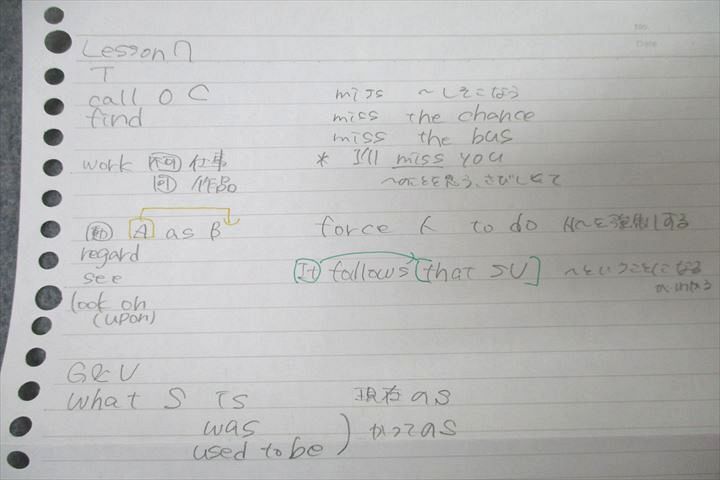 No.
Date
Lesson 7
T
call O C
find
work 不可 仕事
可 作品
動 A as B
regard
see
look on
(upon)
G&V
what S is 現在のS
was
used to be ) かつてのS
miss 〜しそこなう
miss the chance
miss the bus
* I'll miss you
〜のことを思う、さびしくて
force 人 to do 人〜を強制する
It follows [that SV] 〜ということになる
がいえる